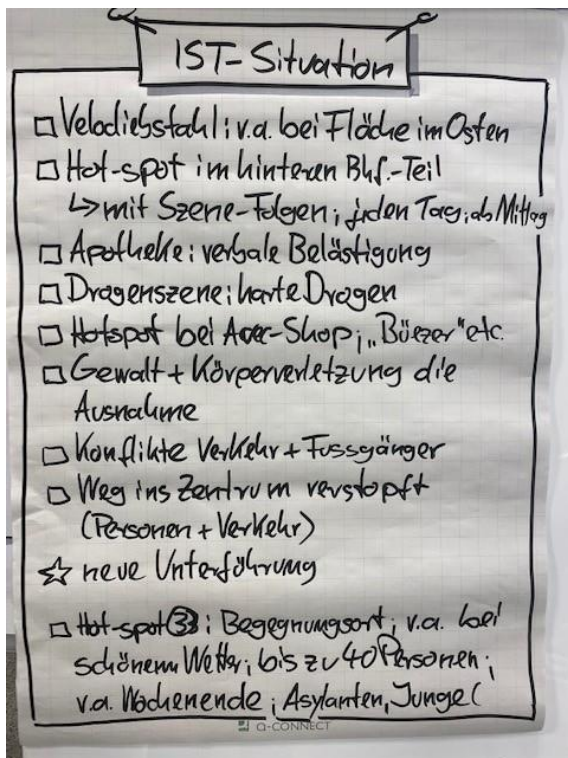 IST-Situation
□ Velodiebstahl: v.a. bei Fläche im Osten
□ Hot-spot im hinteren Bhf.-Teil
↳ mit Szene-Folgen; jeden Tag; ab Mittag
□ Apotheke: verbale Belästigung
□ Drogenszene: harte Drogen
□ Hotspot bei Avec-Shop; „Büezer" etc.
□ Gewalt + Körperverletzung die
Ausnahme
□ Konflikte Verkehr + Fussgänger
□ Weg ins Zentrum verstopft
(Personen + Verkehr)
☆ neue Unterführung
□ Hot-spot ③: Begegnungsort; v.a. bei
schönem Wetter; bis zu 40 Personen;
v.a. Wochenende; Asylanten, Junge (
Q-CONNECT